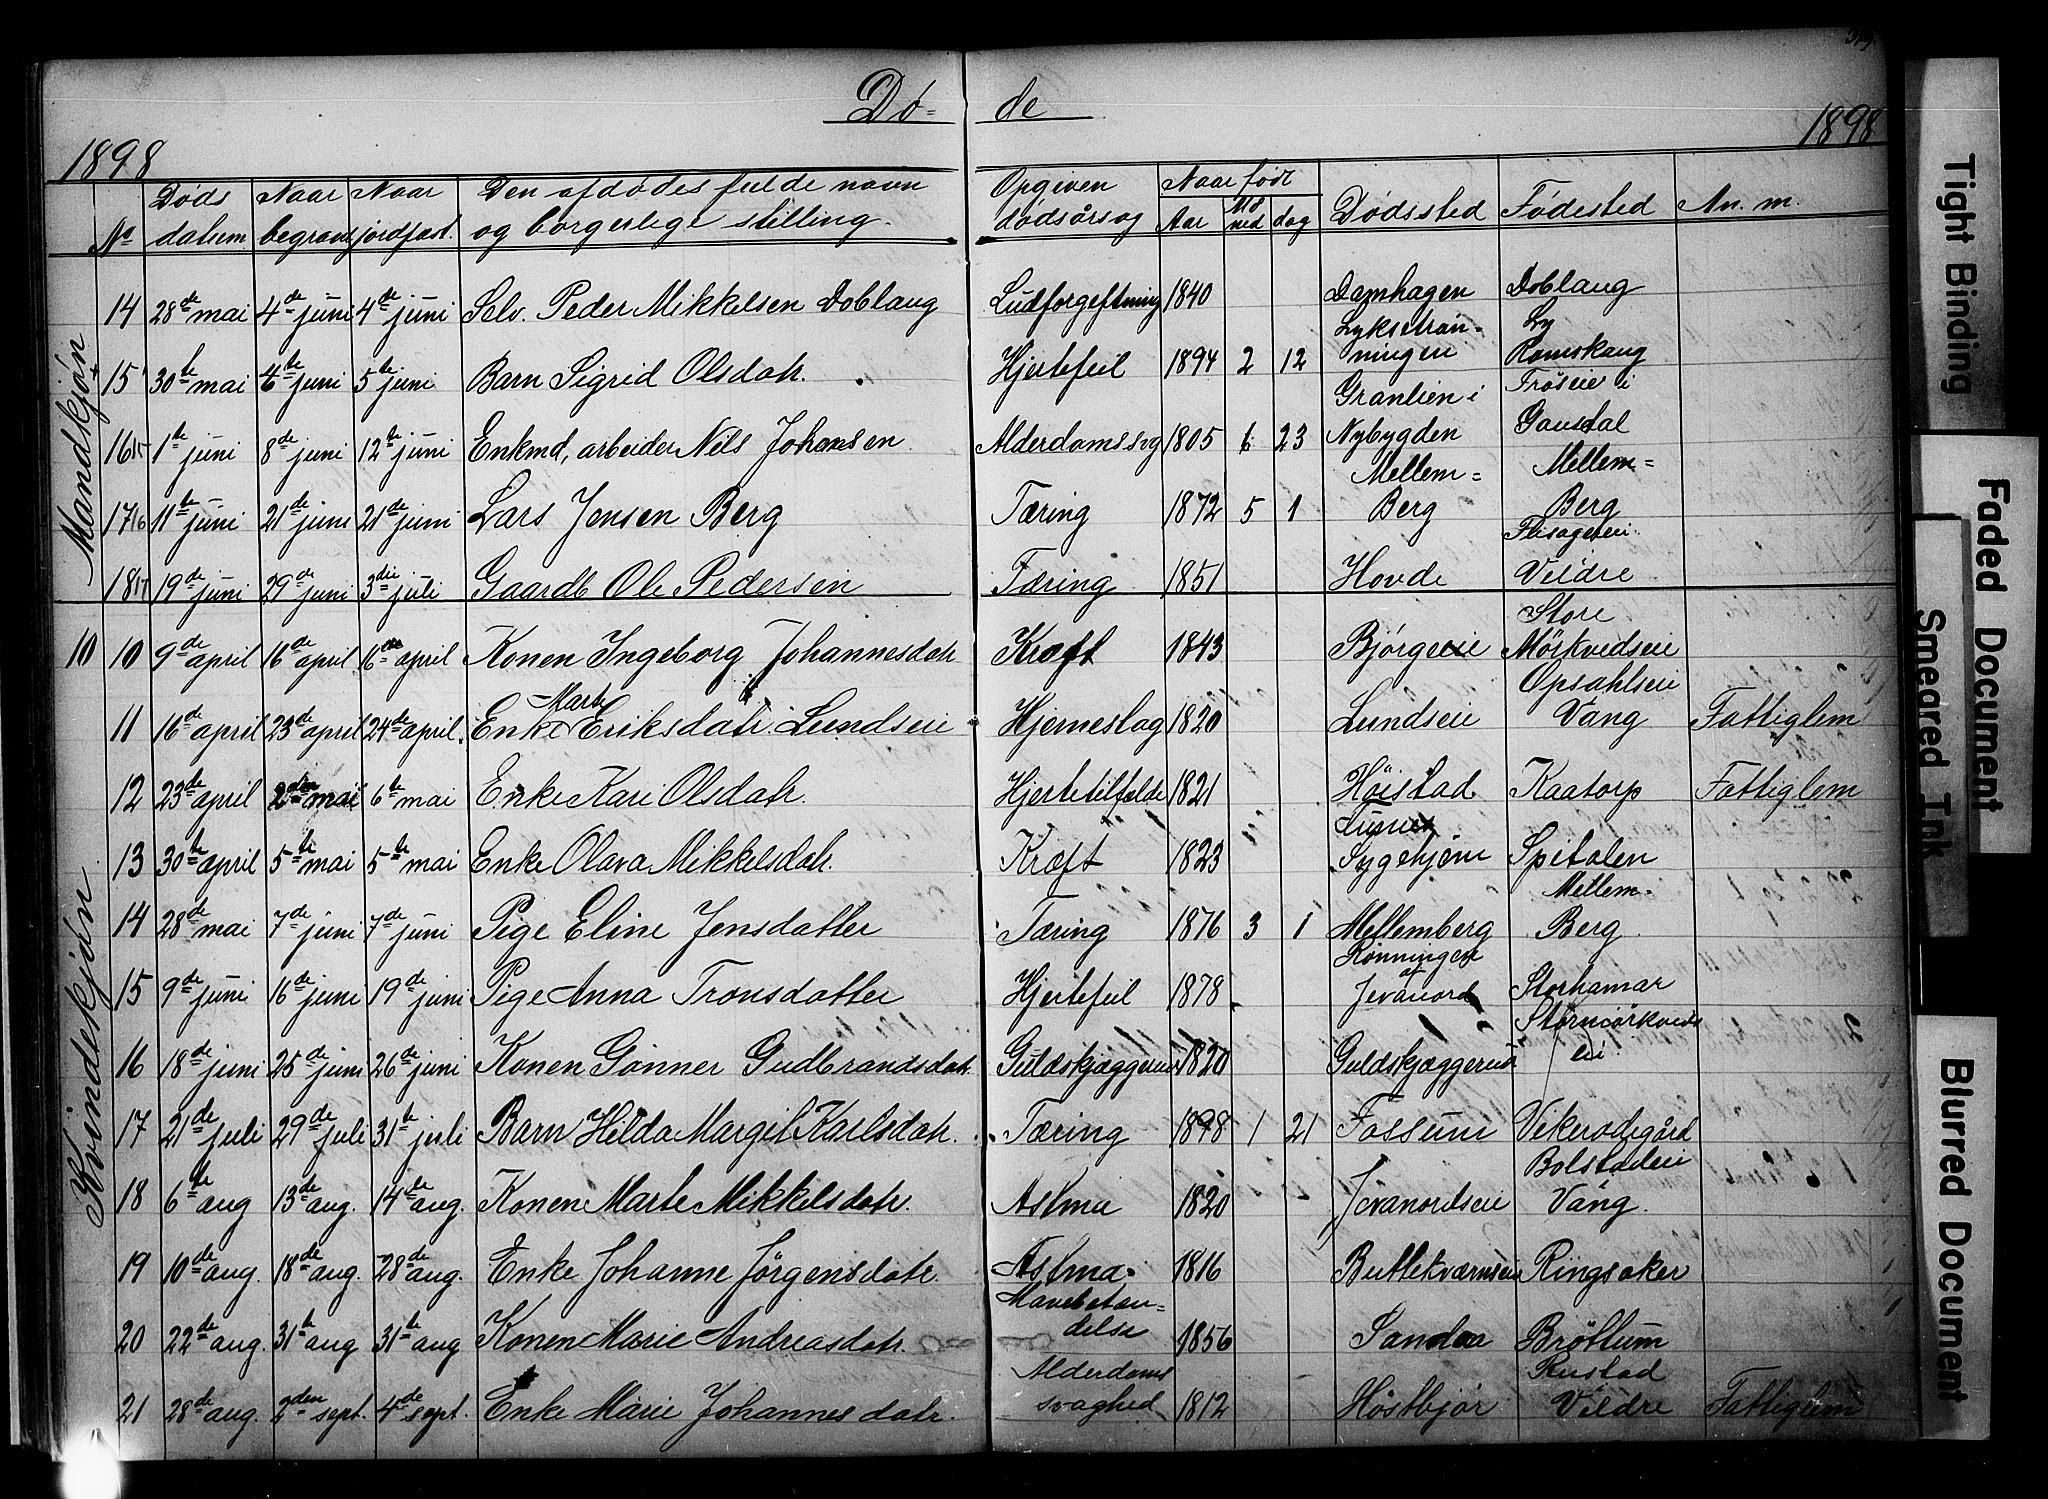 Dø= de
1898 1898
No Døds datum Naar begravet Naar jordfæst. Den afdødes fulde navn og borgerlige stilling. Opgiven dødsårsag Naar født Aar Måned dag Dødssted Fødested An. m.
Mandkjøn
14 28de mai 4de juni 4de juni Selv. Peder Mikkelsen Doblaug Ludforgeftning 1840 Damhagen Doblaug
15 30te mai 4de juni 5te juni Barn Sigrid Olsdatr. Hjertefeil 1894 2 12 Lykstrønningen Ly Romskaug
16 15 1te juni 8de juni 12te juni Enkmd, arbeider Nils Johansen 
Alderdomssvg 1805 6 23 Granlien i Nybygden Frøseie i Gausdal
17 16 11te juni 21de juni 21de juni Lars Jensen Berg Tæring 1872 5 1 Mellem= Berg Mellem= Berg
18 17 19de juni 29de juni 3die juli Gaardb Ole Pedersen Tæring 1851 Hovde Veldre
Kvindekjøn
10 10 9de april 16de april 16de april Konen Ingeborg Johannesdatr Kræft 1843 Bjørgeeie Store Mørkvedseie
11 16de april 23de april 24de april. Enke Marte Eriksdatr. Lundseie Hjerneslag 1820 Lundseie Opsahlseie Vang Fattiglem
12 23de april 2den mai 6te mai Enke Kari Olsdatr. Hjertetilfælde 1821 Høistad Kaatorp Fattiglem
13 30te april 5te mai 5te mai Enke Olava Mikkelsdatr. Kræft 1823 Sygehjem Spitalen
14 28de mai 7de juni 7de juni Pige Eline Jensdatter Tæring 1876 3 1 Mellemberg Mellem= Berg
15 9de juni 16de juni 19de juni Pige Anna Tronsdatter Hjertefeil 1878 Rønningen af Jevanord Storhamar
16 18de juni 25de juni 26de juni Konen Gønner Gudbrandsdatr. Guldskjæggerud 1820 Guldskjæggerud Stormørkveds eie
17 21de juli 29de juli 31te juli Barn Hilda Margit Karlsdatr. Tæring 1898 1 21 Fossum Vikerødegård
18 6te aug 13de aug. 14de aug. Konen Marte Mikkelsdatr. Astma 1820 Jevanordseie Bolstadeie Vang.
19 10de aug. 18de aug. 28de aug. Enke Johanne Jørgensdatr. Astma 1816 Buttekværnseie Ringsaker
20 22de aug. 31te aug 31te aug Konen Marie Andreasdatr. Mavebetændelse 1856 Sandee Brøttum
21 28de aug. 2den sept. 4de sept. Enke Marie Johannesdatr. Alderdoms svaghed 1812 Høstbjør Rustad Veldre Fattiglem
Tight Binding
Faded Document
Smeared Ink
Blurred Document